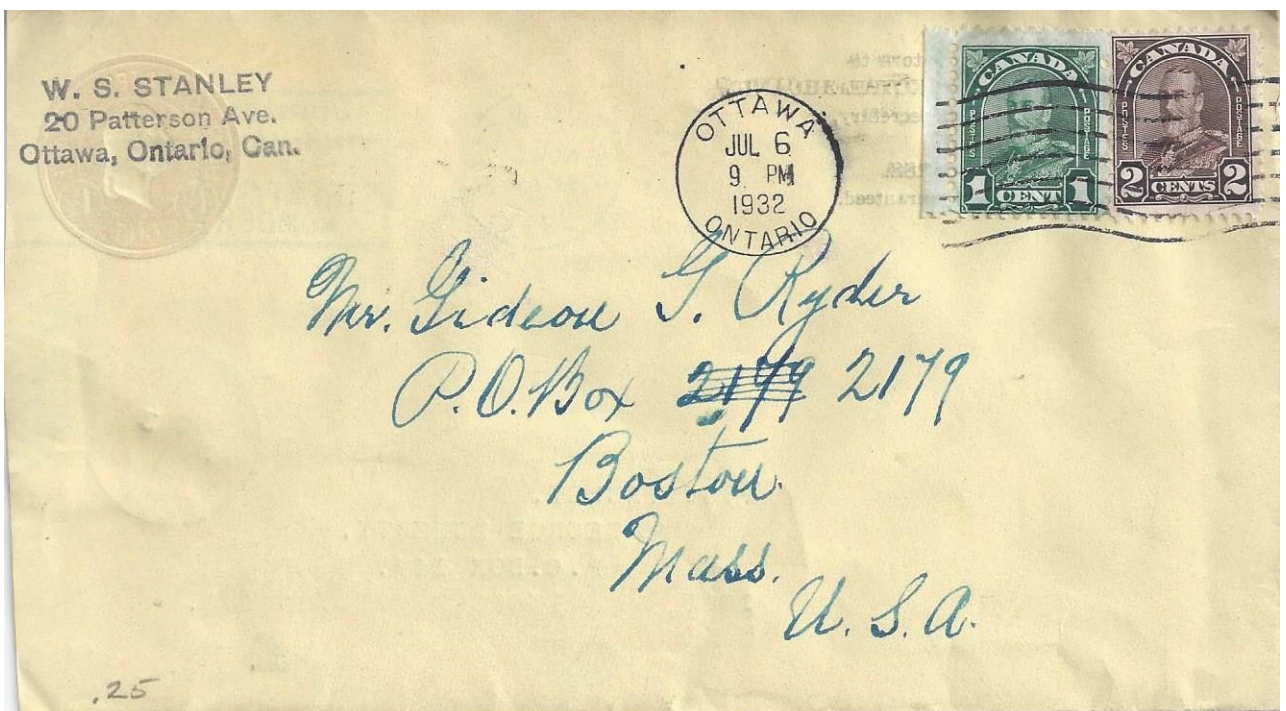 W. S. STANLEY
20 Patterson Ave.
Ottawa, Ontario, Can.
OTTAWA
JUL 6
9 PM
1932
ONTARIO
CANADA
POSTES
POSTAGE
1 CENT 1
CANADA
POSTES
POSTAGE
2 CENTS 2
Mr. Gideon G. Ryder
P.O. Box 2179 2179
Boston
Mass.
U. S. A.
.25